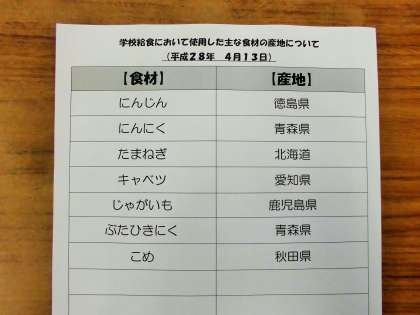 学校給食において使用した主な食材の産地について
（平成２８年　４月１３日）
【食材】 【産地】
にんじん 徳島県
にんにく 青森県
たまねぎ 北海道
キャベツ 愛知県
じゃがいも 鹿児島県
ぶたひきにく 青森県
こめ 秋田県